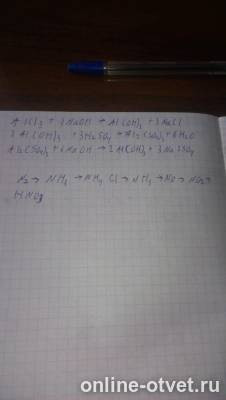 AlCl3 + 3NaOH → Al(OH)3 + 3NaCl
2Al(OH)3 + 3H2SO4 → Al2(SO4)3 + 6H2O
Al2(SO4)3 + 6NaOH → 2Al(OH)3 + 3Na2SO4
N2 → NH3 → NH4Cl → NH3 → NO → NO2 →
HNO3
online-otvet.ru